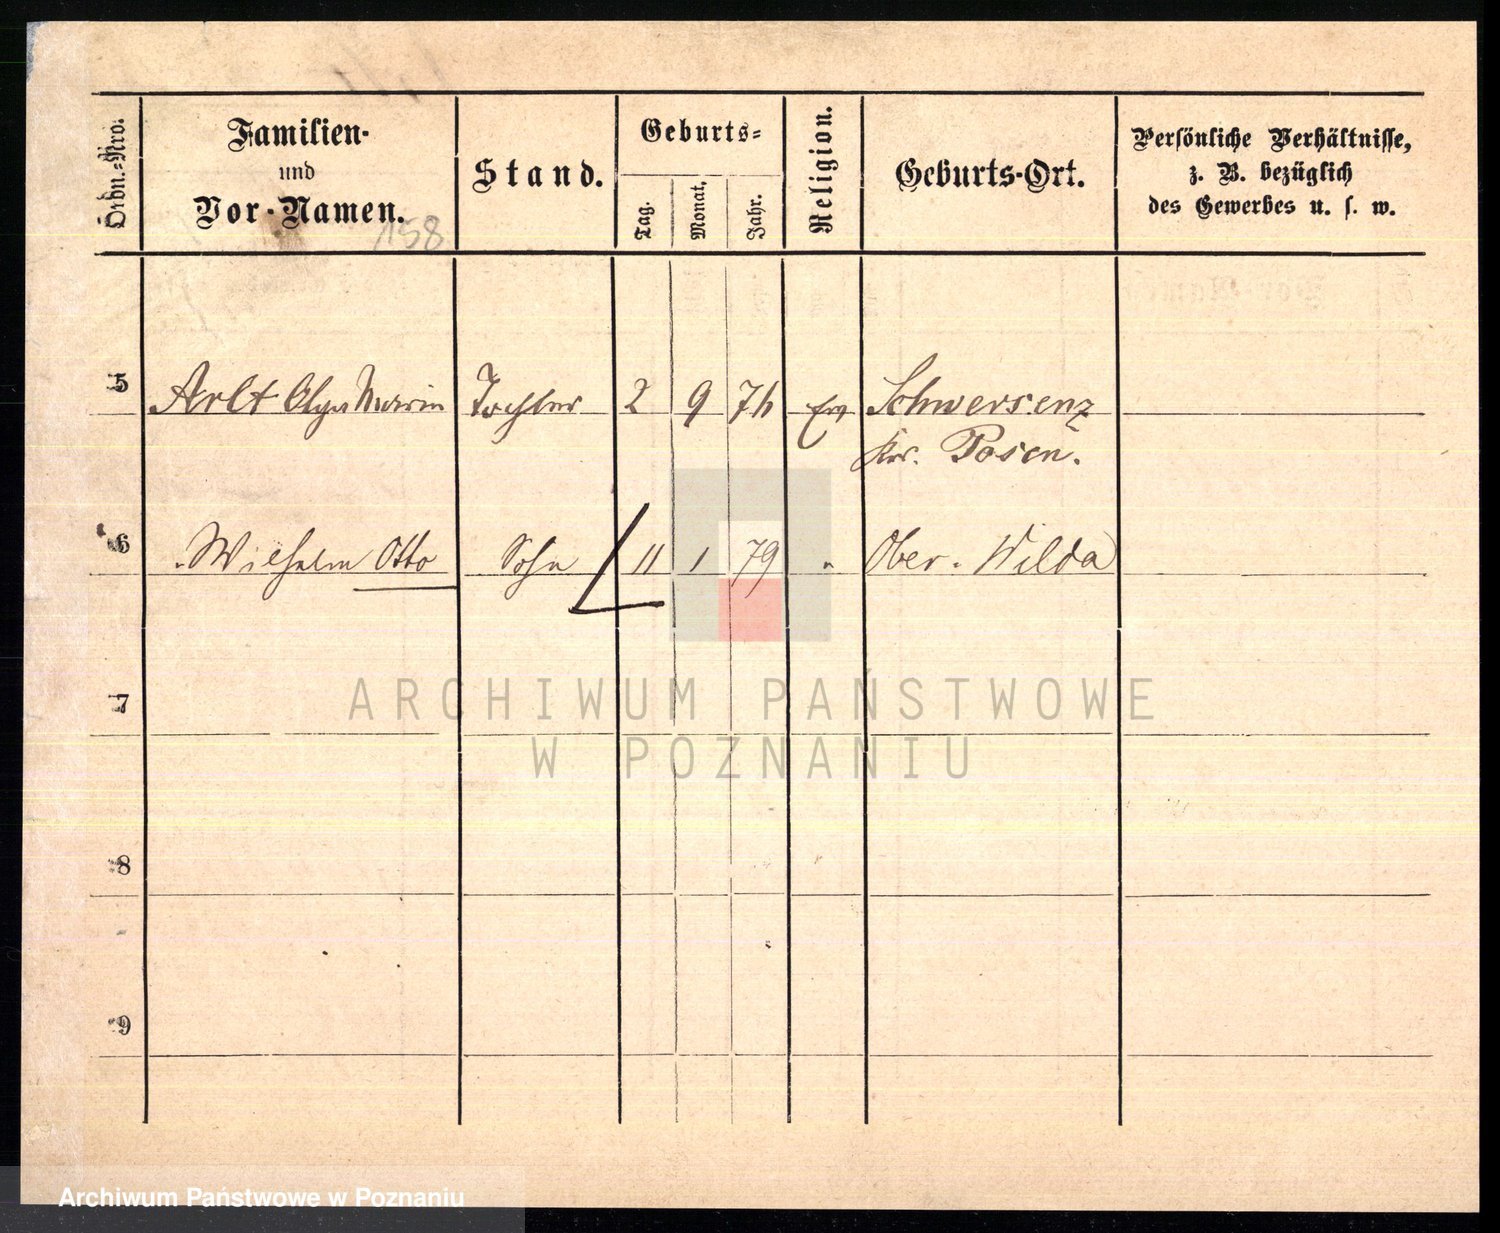 Ordn.-Nro.
Familien-
und
Vor-Namen.
Stand.
Geburts-
Tag.
Monat.
Jahr.
Religion.
Geburts-Ort.
Persönliche Verhältnisse,
z. B. bezüglich
des Gewerbes u. s. w.
158
5 Arlt Olga Marie Tochter 2 9 76 Ev Schwersenz
Krs. Posen.
6 Wilhelm Otto Sohn 11 1 79 " Ober-Wilda
7
ARCHIWUM PAŃSTWOWE
W POZNANIU
8
9
Archiwum Państwowe w Poznaniu